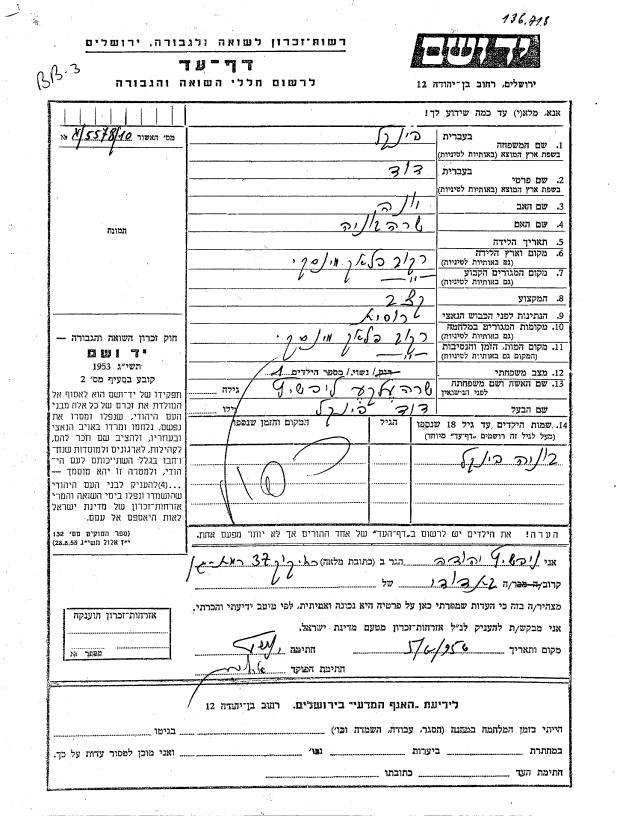 136.718
BB-3
רשות-זכרון לשואה ולגבורה, ירושלים
דף-עד
לרשום חללי השואה והגבורה
יד ושם
ירושלים, רחוב בן-יהודה 12
אנא, מלא(י) עד כמה שידוע לך!
מס' האשור 5578/10 №
תמונה
חוק זכרון השואה והגבורה —
יד ושם
תשי"ג 1953
קובע בסעיף מס' 2
תפקידו של יד-ושם הוא לאסוף אל
המולדת את זכרם של כל אלה מבני
העם היהודי, שנפלו ומסרו את
נפשם, נלחמו ומרדו באויב הנאצי
ובעוזריו, ולהציב שם וזכר להם,
לקהילות, לארגונים ולמוסדות שנח-
רבו בגלל השתייכותם לעם היה-
הודי, ולמטרה זו יהא מוסמך —
...(4)להעניק לבני העם היהודי
שהושמדו ונפלו בימי השואה והמרי
אזרחות-זכרון של מדינת ישראל
לאות היאספם אל עמם.
(ספר החוקים מס' 132
י"ז אלול תשי"ג 28.8.53)
1. שם המשפחה בעברית בינקל
בשפת ארץ המוצא (באותיות לטיניות)
2. שם פרטי בעברית דוד
בשפת ארץ המוצא (באותיות לטיניות)
3. שם האב יונה
4. שם האם שרה
5. תאריך הלידה
6. מקום וארץ הלידה
(גם באותיות לטיניות)
7. מקום המגורים הקבוע — " —
(גם באותיות לטיניות)
8. המקצוע קצב
9. הנתינות לפני הכבוש הנאצי
10. מקומות המגורים במלחמה
(גם באותיות לטיניות)
11. מקום המות, הזמן והנסיבות — " —
(המקום גם באותיות לטיניות)
12. מצב משפחתי רווק/ נשוי/ מספר הילדים 1
13. שם האשה ושם משפחתה שרה ליבשיץ גילה
לפני הנישואין
שם הבעל דוד בינקל גילו
14. שמות הילדים, עד גיל 18 שנספו הגיל המקום והזמן שנספו
(מעל לגיל זה רושמים "דף-עד" מיוחד)
בינקל
הערה! את הילדים יש לרשום ב"דף-עד" של אחד ההורים אך לא יותר מפעם אחת.
אני ליבשיץ יהודה הגר ב (כתובת מלאה) 37
קרוב/ה מכר/ה של
מצהיר/ה בזה כי העדות שמסרתי כאן על פרטיה היא נכונה ואמיתית, לפי מיטב ידיעתי והכרתי.
אני מבקש/ת להעניק לנ"ל אזרחות-זכרון מטעם מדינת ישראל.
מקום ותאריך חתימה
חתימת הפוקד
אזרחות-זכרון הוענקה
מסמך № 
לידיעת "האגף המדעי" בירושלים, רחוב בן-יהודה 12
הייתי בזמן המלחמה במחנה (הסגר, עבודה, השמדה וכו') בגיטו
במחתרת ביערות וכו' ואני מוכן למסור עדות על כך.
חתימת העד כתובתו